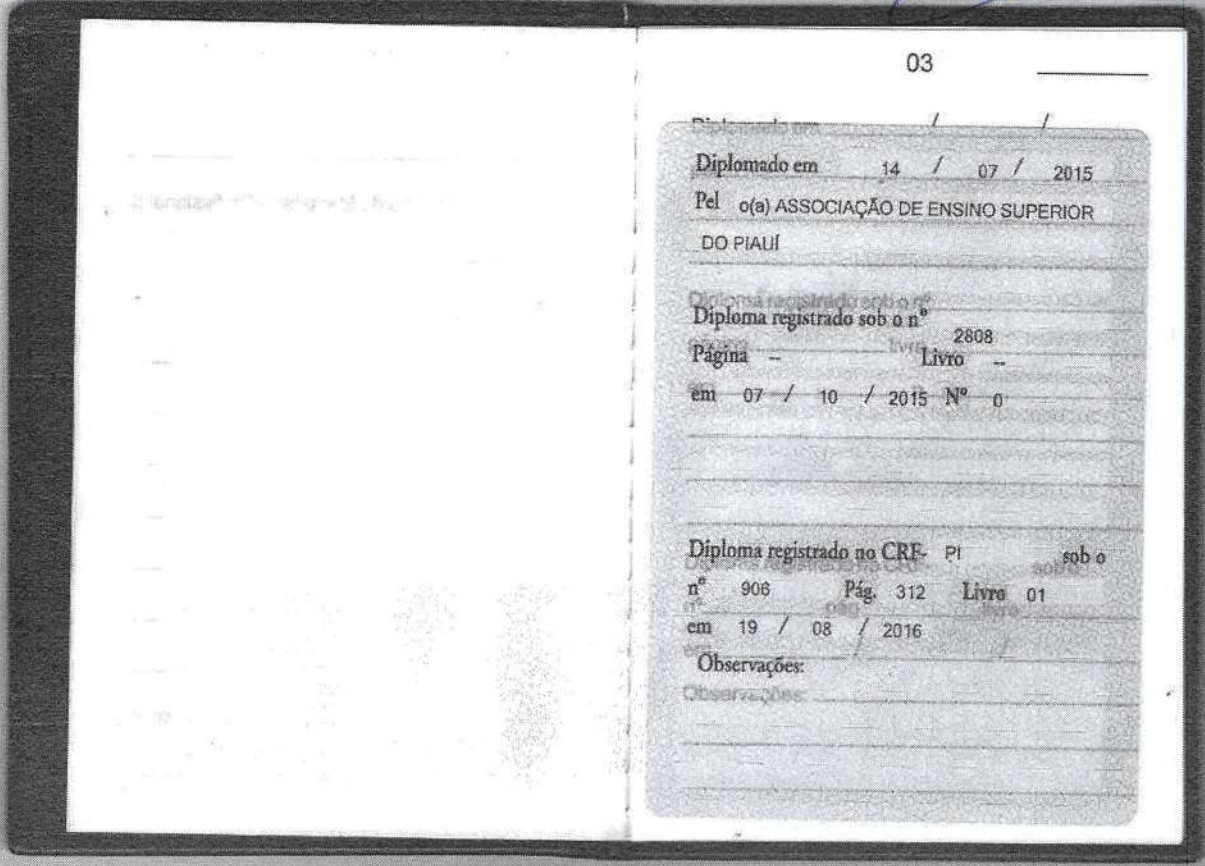 03
Diplomado em / /
Diplomado em 14 / 07 / 2015
Pel o(a) ASSOCIAÇÃO DE ENSINO SUPERIOR
DO PIAUÍ
Diploma registrado sob o nº
Diploma registrado sob o nº 2808
Página -- Livro --
em 07 / 10 / 2015 Nº 0
Diploma registrado no CRF- PI sob o
nº 906 Pág. 312 Livro 01
em 19 / 08 / 2016
Observações:
Observações: